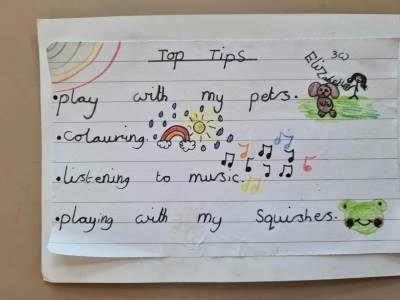 Top Tips
3W
•play with my pets.
•colouring.
•listening to music.
•playing with my Squishes.